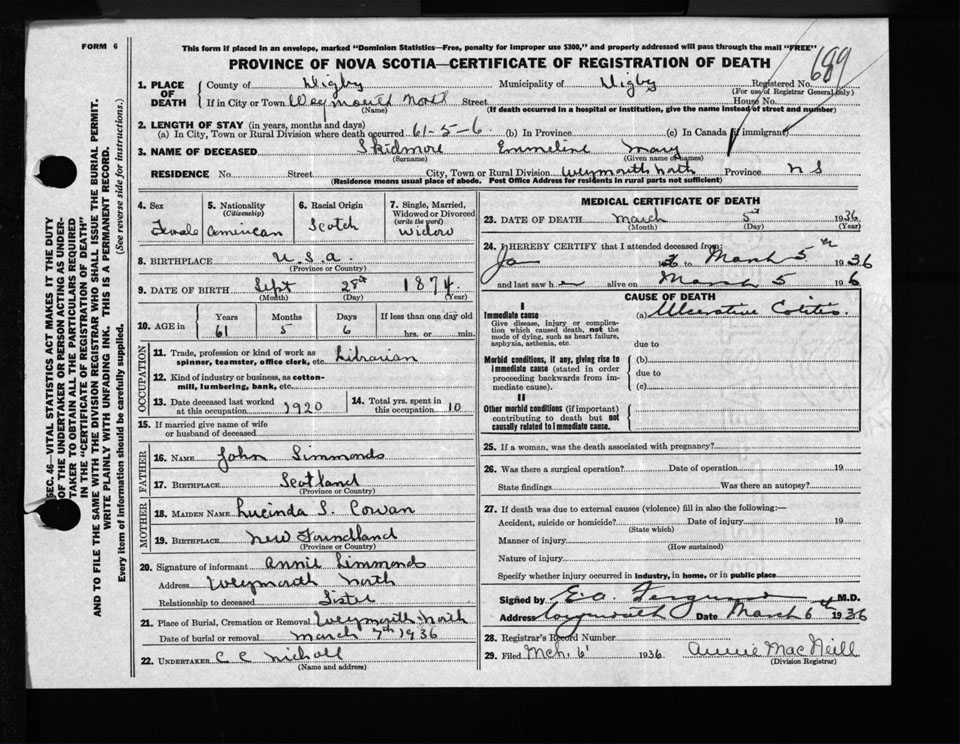 FORM 6
This form if placed in an envelope, marked "Dominion Statistics—Free, penalty for improper use $300," and properly addressed will pass through the mail "FREE"
PROVINCE OF NOVA SCOTIA—CERTIFICATE OF REGISTRATION OF DEATH
689
1. PLACE OF DEATH
County of Digby Municipality of Digby Registered No.
(For use of Registrar General only)
If in City or Town Weymouth North Street House No.
(Name) (If death occurred in a hospital or institution, give the name instead of street and number)
2. LENGTH OF STAY (in years, months and days)
(a) In City, Town or Rural Division where death occurred 61-5-6 (b) In Province (c) In Canada if immigrant
3. NAME OF DECEASED Skidmore Emmeline Mary
(Surname) (Given name or names)
RESIDENCE No. Street City, Town or Rural Division Weymouth North Province N S
(Residence means usual place of abode. Post Office Address for residents in rural parts not sufficient)
4. Sex
Female
5. Nationality
(Citizenship)
American
6. Racial Origin
Scotch
7. Single, Married, Widowed or Divorced
(write the word)
Widow
8. BIRTHPLACE U.S.A.
(Province or Country)
9. DATE OF BIRTH Sept 28th 1874
(Month) (Day) (Year)
10. AGE in
Years Months Days If less than one day old
61 5 6 hrs. or min.
OCCUPATION
11. Trade, profession or kind of work as spinner, teamster, office clerk, etc. Librarian
12. Kind of industry or business, as cotton-mill, lumbering, bank, etc.
13. Date deceased last worked at this occupation 1920
14. Total yrs. spent in this occupation 10
15. If married give name of wife or husband of deceased
FATHER
16. NAME John Simmonds
17. BIRTHPLACE Scotland
(Province or Country)
MOTHER
18. MAIDEN NAME Lucinda S. Cowan
19. BIRTHPLACE New Foundland
(Province or Country)
20. Signature of informant Annie Simmonds
Address Weymouth North
Relationship to deceased Sister
21. Place of Burial, Cremation or Removal Weymouth North
Date of burial or removal March 7th 1936
22. UNDERTAKER C C Nicholl
(Name and address)
MEDICAL CERTIFICATE OF DEATH
23. DATE OF DEATH March 5th 1936
(Month) (Day) (Year)
24. I HEREBY CERTIFY that I attended deceased from:
Jan 1936 to March 5th 1936
and last saw her alive on March 5 1936
CAUSE OF DEATH
I
Immediate cause
Give disease, injury or complication which caused death, not the mode of dying, such as heart failure, asphyxia, asthenia, etc.
(a) Ulcerative Colitis
due to
Morbid conditions, if any, giving rise to immediate cause (stated in order proceeding backwards from immediate cause).
(b)
due to
(c)
II
Other morbid conditions (if important) contributing to death but not causally related to immediate cause.
25. If a woman, was the death associated with pregnancy?
26. Was there a surgical operation? Date of operation 19
State findings Was there an autopsy?
27. If death was due to external causes (violence) fill in also the following:—
Accident, suicide or homicide? Date of injury 19
(State which)
Manner of injury
(How sustained)
Nature of injury
Specify whether injury occurred in industry, in home, or in public place
Signed by E. O. M.D.
Address Weymouth Date March 6th 1936
28. Registrar's Record Number
29. Filed Mch. 6 1936 Annie MacNeill
(Division Registrar)
SEC. 46—VITAL STATISTICS ACT MAKES IT THE DUTY
OF THE UNDERTAKER OR PERSON ACTING AS UNDER-
TAKER TO OBTAIN ALL THE PARTICULARS REQUIRED
IN THE "CERTIFICATE OF REGISTRATION OF DEATH"
AND TO FILE THE SAME WITH THE DIVISION REGISTRAR WHO SHALL ISSUE THE BURIAL PERMIT.
WRITE PLAINLY WITH UNFADING INK. THIS IS A PERMANENT RECORD.
Every item of information should be carefully supplied. (See reverse side for instructions.)